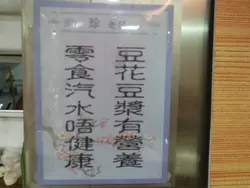 豆花豆漿有營養
零食汽水唔健康